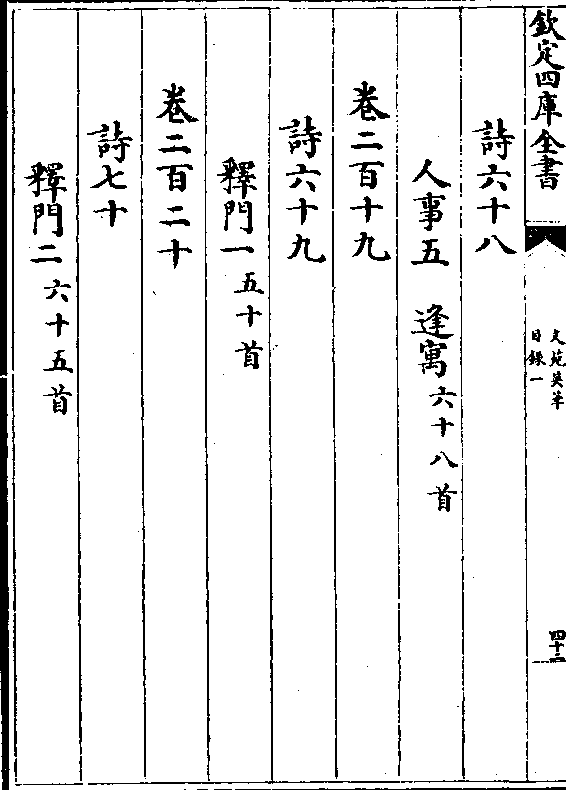 欽定四庫全書
文苑英華
目錄一
四十二
詩六十八
人事五　逢寓六十八首
卷二百十九
詩六十九
釋門一五十首
卷二百二十
詩七十
釋門二六十五首